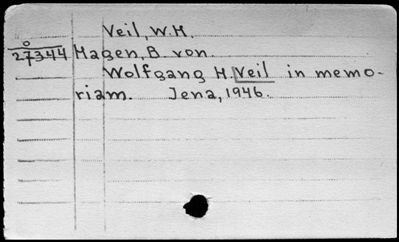 Veil, W.H.
o
27344 Hagen, B. von.
Wolfgang H. Veil in memo-
riam. Jena, 1946.